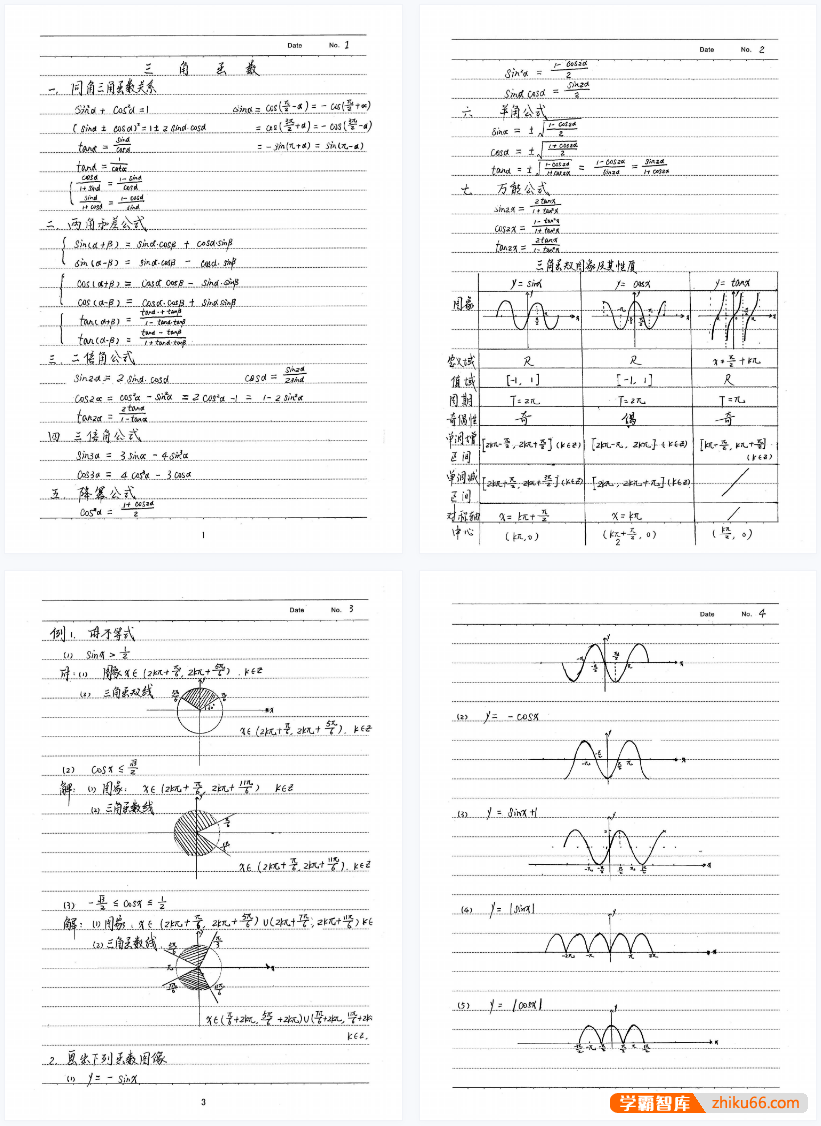 Date No. 1
三角函数
一. 同角三角函数关系
sin²α + cos²α = 1    sinα = cos(π/2-α) = -cos(π/2+α)
(sinα ± cosα)² = 1 ± 2 sinα·cosα    = cos(3π/2+α) = -cos(3π/2-α)
tanα = sinα/cosα    = -sin(π+α) = sin(π-α)
tanα = 1/cotα
cosα/(1+sinα) = (1-sinα)/cosα
sinα/(1+cosα) = (1-cosα)/sinα
二. 两角和差公式
sin(α+β) = sinα·cosβ + cosα·sinβ
sin(α-β) = sinα·cosβ - cosα·sinβ
cos(α+β) = cosα·cosβ - sinα·sinβ
cos(α-β) = cosα·cosβ + sinα·sinβ
tan(α+β) = (tanα+tanβ)/(1-tanα·tanβ)
tan(α-β) = (tanα-tanβ)/(1+tanα·tanβ)
三. 二倍角公式
sin2α = 2 sinα·cosα    cosα = sin2α/2sinα
cos2α = cos²α - sin²α = 2cos²α - 1 = 1 - 2sin²α
tan2α = 2tanα/(1-tan²α)
四 三倍角公式
sin3α = 3sinα - 4sin³α
cos3α = 4cos³α - 3cosα
五. 降幂公式
cos²α = (1+cos2α)/2
1
Date No. 2
sin²α = (1-cos2α)/2
sinα cosα = sin2α/2
六 半角公式
sinα = ±√((1-cos2α)/2)
cosα = ±√((1+cos2α)/2)
tanα = ±√((1-cos2α)/(1+cos2α)) = (1-cos2α)/sin2α = sin2α/(1+cos2α)
七. 万能公式
sin2x = 2tanx/(1+tan²x)
cos2x = (1-tan²x)/(1+tan²x)
tan2x = 2tanx/(1-tan²x)
三角函数图象及其性质
y=sinx y=cosx y=tanx
图象
定义域 R R x=π/2+kπ
值域 [-1, 1] [-1, 1] R
周期 T=2π T=2π T=π
奇偶性 奇 偶 奇
单调增区间 [2kπ-π/2, 2kπ+π/2] (k∈Z) [2kπ-π, 2kπ] (k∈Z) [kπ-π/2, kπ+π/2] (k∈Z)
单调减区间 [2kπ+π/2, 2kπ+3π/2] (k∈Z) [2kπ, 2kπ+π] (k∈Z)
对称轴 x=kπ+π/2 x=kπ
中心 (kπ, 0) (kπ+π/2, 0) (kπ/2, 0)
Date No. 3
例1. 解不等式
(1) sinx > 1/2
解: (1) 图象 x∈(2kπ+π/6, 2kπ+5π/6). k∈Z
(2) 三角函数线
x∈(2kπ+π/6, 2kπ+5π/6). k∈Z
(2) cosx ≤ √3/2
解: (1) 图象: x∈(2kπ+π/6, 2kπ+11π/6) k∈Z
(2) 三角函数线
x∈(2kπ+π/6, 2kπ+11π/6). k∈Z
(3) -√3/2 ≤ cosx ≤ 1/2
解: (1) 图象. x∈(2kπ+π/6, 2kπ+5π/6)∪(2kπ+7π/6, 2kπ+11π/6) k∈
(2) 三角函数线
x∈(π/6+2kπ, 5π/6+2kπ)∪(7π/6+2kπ, 11π/6+2k
k∈Z.
2. 画出下列函数图像
(1) y = -sinx
3
Date No. 4
(2) y = -cosx
(3) y = sinx+1
(4) y = |sinx|
(5) y = |cosx|
学霸智库 zhiku66.com